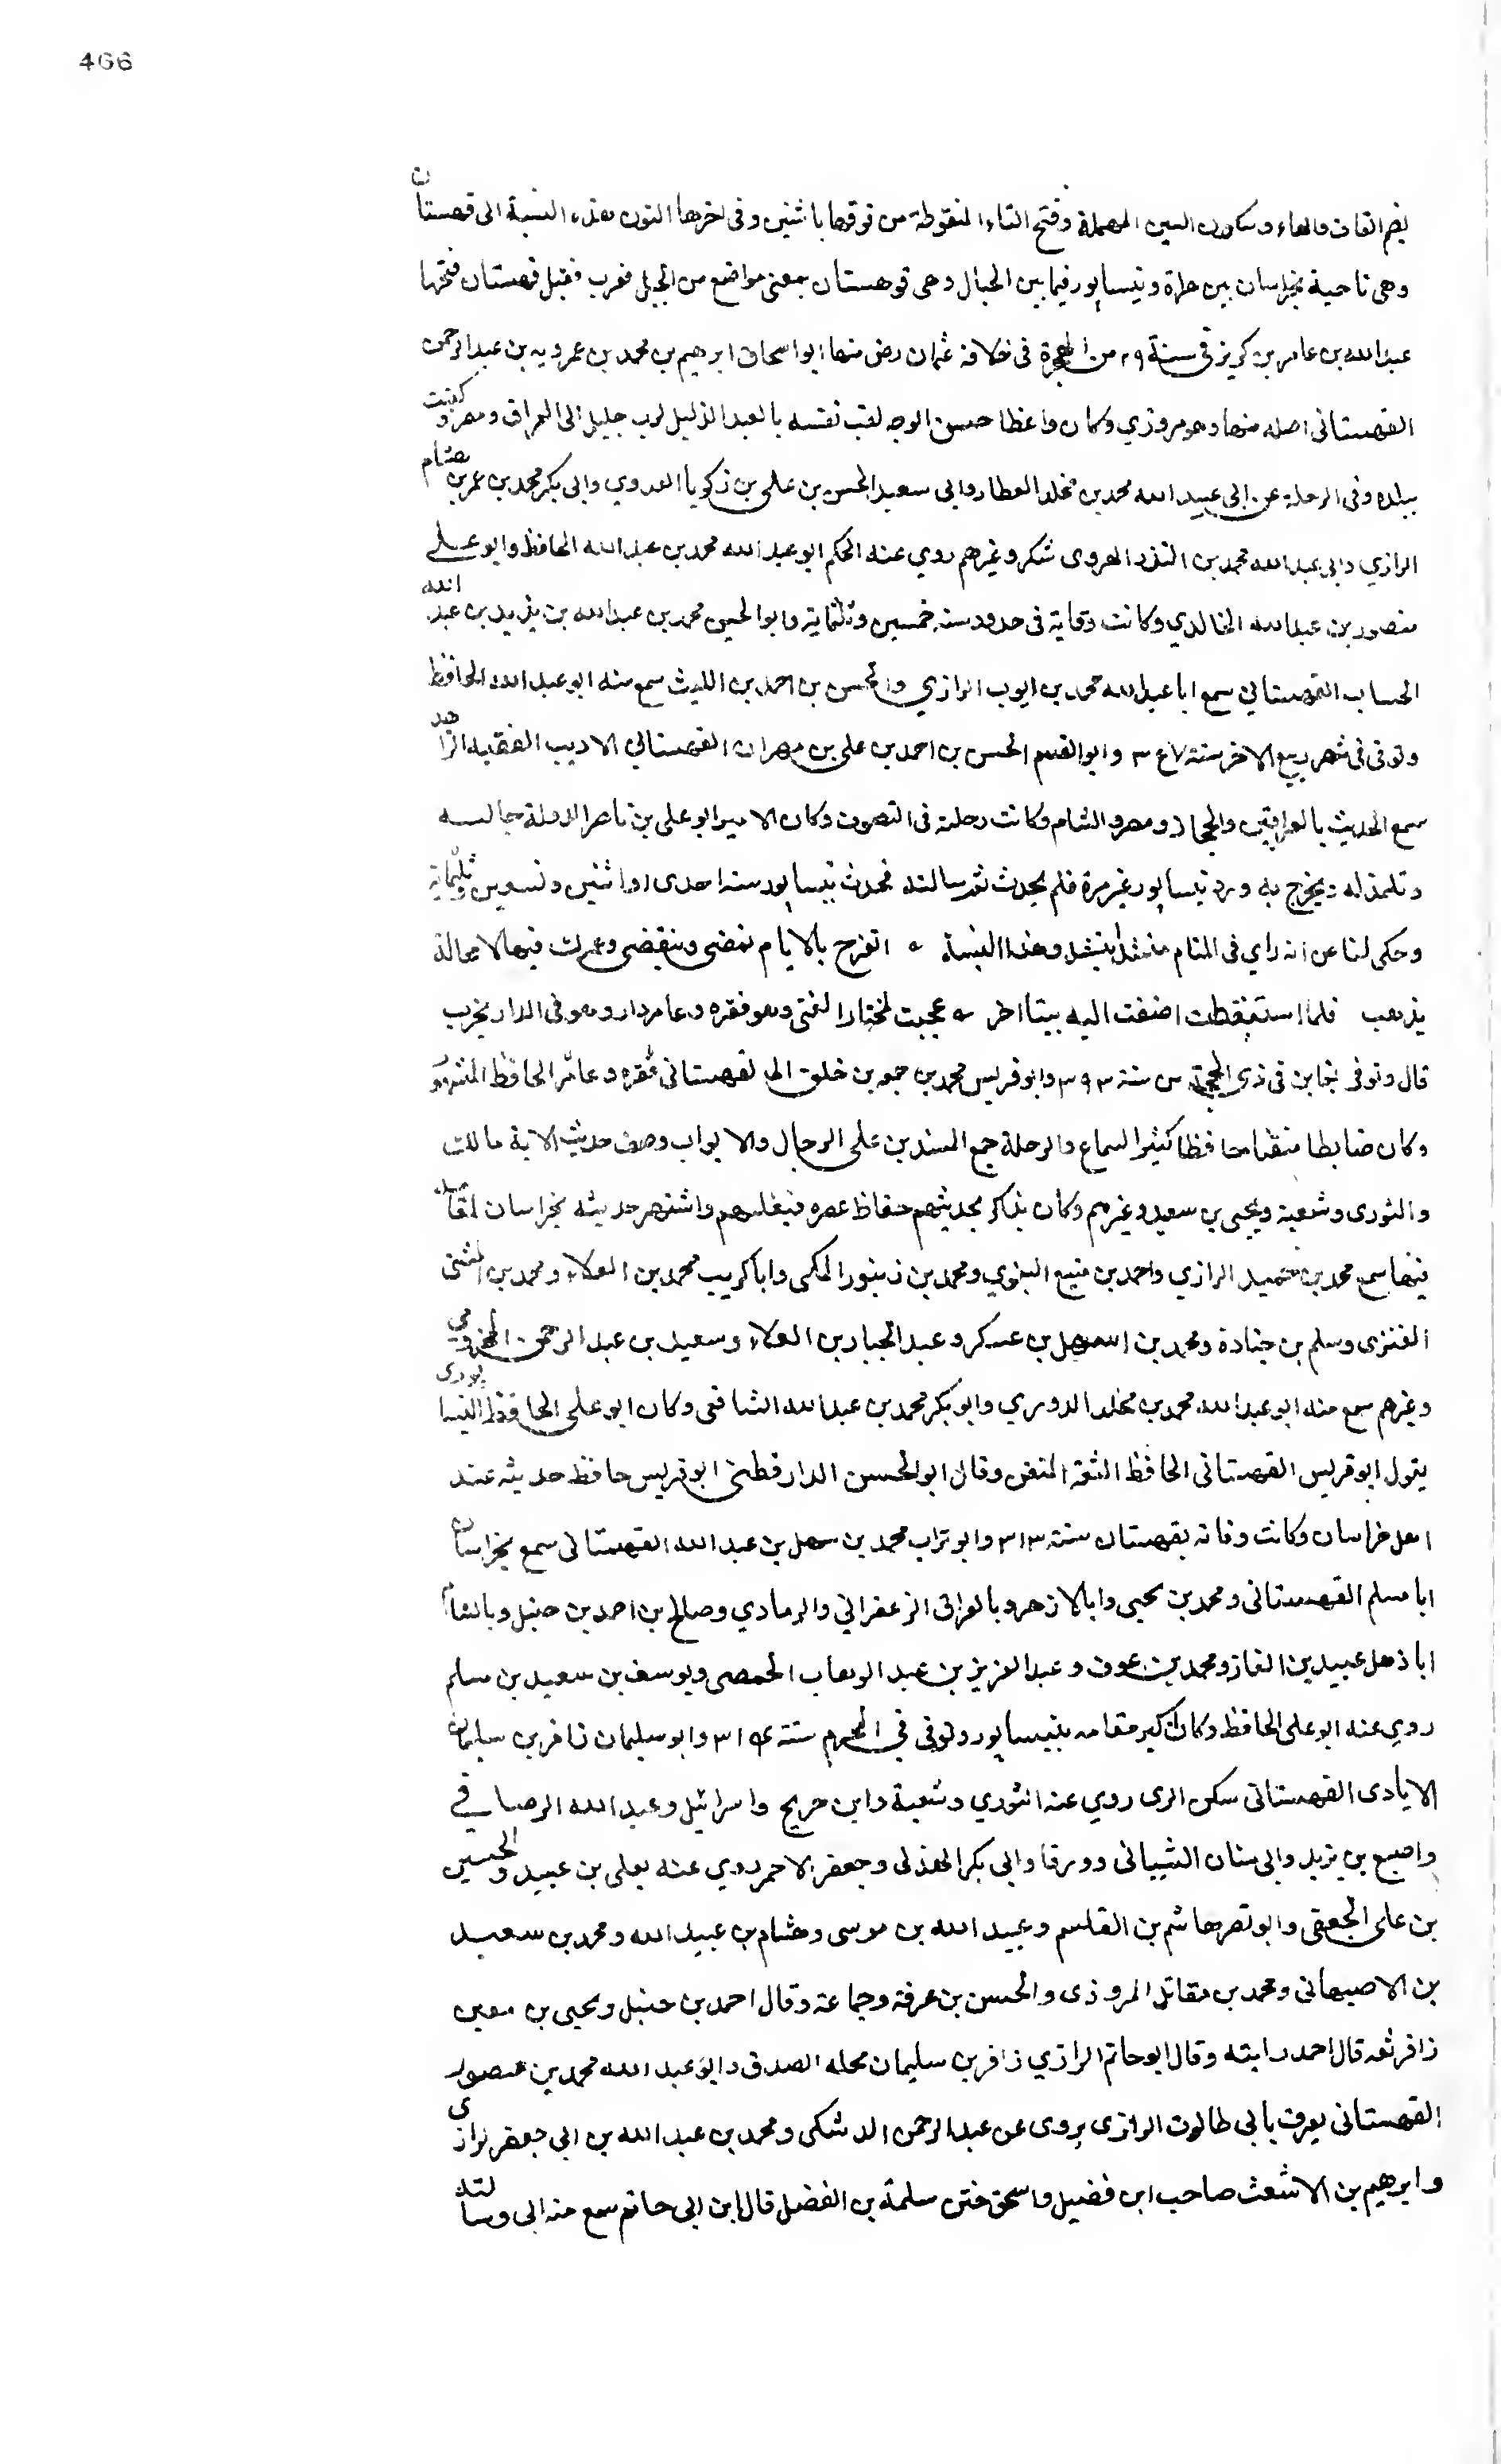 466
بضم القاف والهاء وسكون السين المهملة وفتح التاء المنقوطة من فوقها باثنين وفى اخرها النون هذه النسبة الى قهستان
وهى ناحية بخراسان بين هراة ونيسابور فيما بين الجبال وهى قوهستان بمعنى مواضع من الجبل فعرب فقيل قهستان فتحها
عبد الله بن عامر بن كريز فى سنة ٢٩ من الهجرة فى خلافة عثمان رض منها ابو اسحاق ابرهيم بن محمد بن عمرويه بن عبد الرحمن
القهستانى اصله منها وهو مروزي وكان واعظا حسن الوجه لقب نفسه بالعبد الذليل لرب جليل الى العراق ومصر وكتبت
ببلده وفى الرحلة عن ابى عبيد الله محمد بن مخلد العطار وابى سعيد الحسن بن على بن زكويا العدوي وابى بكر محمد بن عمر بن هشام
الرازي وابى عبد الله محمد بن المنذر الهروى شكر وغيرهم روي عنه الحكم ابو عبد الله محمد بن عبد الله الحافظ وابو على
منصور بن عبد الله الخالدي وكانت وفاته فى حدود سنة خمسين وثلثماية وابو الحسن محمد بن عبد الله بن يزيد بن عبد الله
الحساب القهستاني سمع ابا عبد الله محمد بن ايوب الرازي والحسن بن احمد بن الليث سمع منه ابو عبد الله الحافظ
وتوفى فى شهر ربيع الاخر سنة ٣٤٧ وابو القسم الحسن بن احمد بن على بن مهران القهستاني الاديب الفقيه الزاهد
سمع الحديث بالعراقين والحجاز ومصر والشام وكانت رحلته فى التصوف وكان الامير ابو على بن ناصر الدولة جالسه
وتلمذ له ويخرج به ورد نيسابور غير مرة فلم يحدث ثم سالته فحدث بنيسابور سنة احدى او اثنين وتسعين وثلثماية
وحكى لنا عن انه راي فى المنام منشدا ينشد وهذا البنساة ه اتفرح بالايام تمضى وتنقضى وعمرك فيها لا محالة
يذهب فلما استيقظت اضفت اليه بيتا اخر ه عجبت لمختار الغنى وهو فقره وعامر دار وهو فى الدار يخرب
قال وتوفى بخابن فى ذى الحجة س سنة ٣٩٣ وابو قريش محمد بن جمعه بن خلف القهستانى فقره وعامر الحافظ المشهور
وكان ضابطا متقنا حافظا كثير السماع والرحلة جمع المسندين على الرجال والابواب وصف حديث الاية مالك
والثورى وشعبة ويحيى بن سعيد وغيرهم وكان يذاكر بحديثهم حفاظ عصره فيغلبهم واشتهر حديثه بخراسان
فيها سمع محمد بن حميد الرازي واحمد بن منيع البغوي ومحمد بن زنبور المكى وابا كريب محمد بن العلاء ومحمد بن المثنى
العنزى وسلم بن جنادة ومحمد بن سهل بن عسكر وعبد الجبار بن العلاء وسعيد بن عبد الرحمن المخزومى
وغيرهم سمع منه ابو عبد الله محمد بن مخلد الدوري وابو بكر محمد بن عبد الله الشافعى وكان ابو على الحافظ النيسابورى
يقول ابو قريس القهستانى الحافظ الثقة المتقن وقال ابو الحسن الدار قطنى ابو قريس حافظ حديثه عند
اهل خراسان وكانت وفاته بقهستان سنة ٣١٣ وابو تراب محمد بن سهل بن عبد الله القهستانى سمع بخراسان
ابا مسلم القهستانى ومحمد بن يحيى وابا الازهر وبالعراق الزعفراني والرمادي وصالح بن احمد بن حنبل وبالشام
ابا ذهل عبيد بن الغاز ومحمد بن عوف وعبد العزيز بن عبد الوهاب الحمصى ويوسف بن سعيد بن مسلم
روي عنه ابو على الحافظ وكان اكبر مقامه بنيسابور وتوفى فى المحرم سنة ٣١٤ وابو سليمان زافر بن سليمان
الايادى القهستانى سكن الرى روي عنه الثوري وشعبة وابن جريح واسرائيل وعبد الله الرصافي
واصبع بن يزيد وابى سنان الشيبانى وورقا وابى بكر الهذلى وجعفر الاحمر روي عنه يعلى بن عبيد والحسين
بن على الجعفى وابو نصر هاشم بن القاسم وعبيد الله بن موسى وهشام بن عبيد الله ومحمد بن سعيد
بن الاصبهانى ومحمد بن مقاتل المروزى والحسن بن عرفة وجماعة وقال احمد بن حنبل ويحيى بن معين
زافر ثقه قال احمد رايته وقال ابو حاتم الرازي زافر بن سليمان محله الصدق وابو عبد الله محمد بن منصور
القهستانى يعرف بابى طالوت الرازى يروى عن عبد الرحمن الدشتكى ومحمد بن عبد الله بن ابي جعفر الرازى
وابرهيم بن الاشعث صاحب ابن فضيل واسحق ختن سلمة بن الفضل قال ابن ابى حاتم سمع منه ابى وسالته